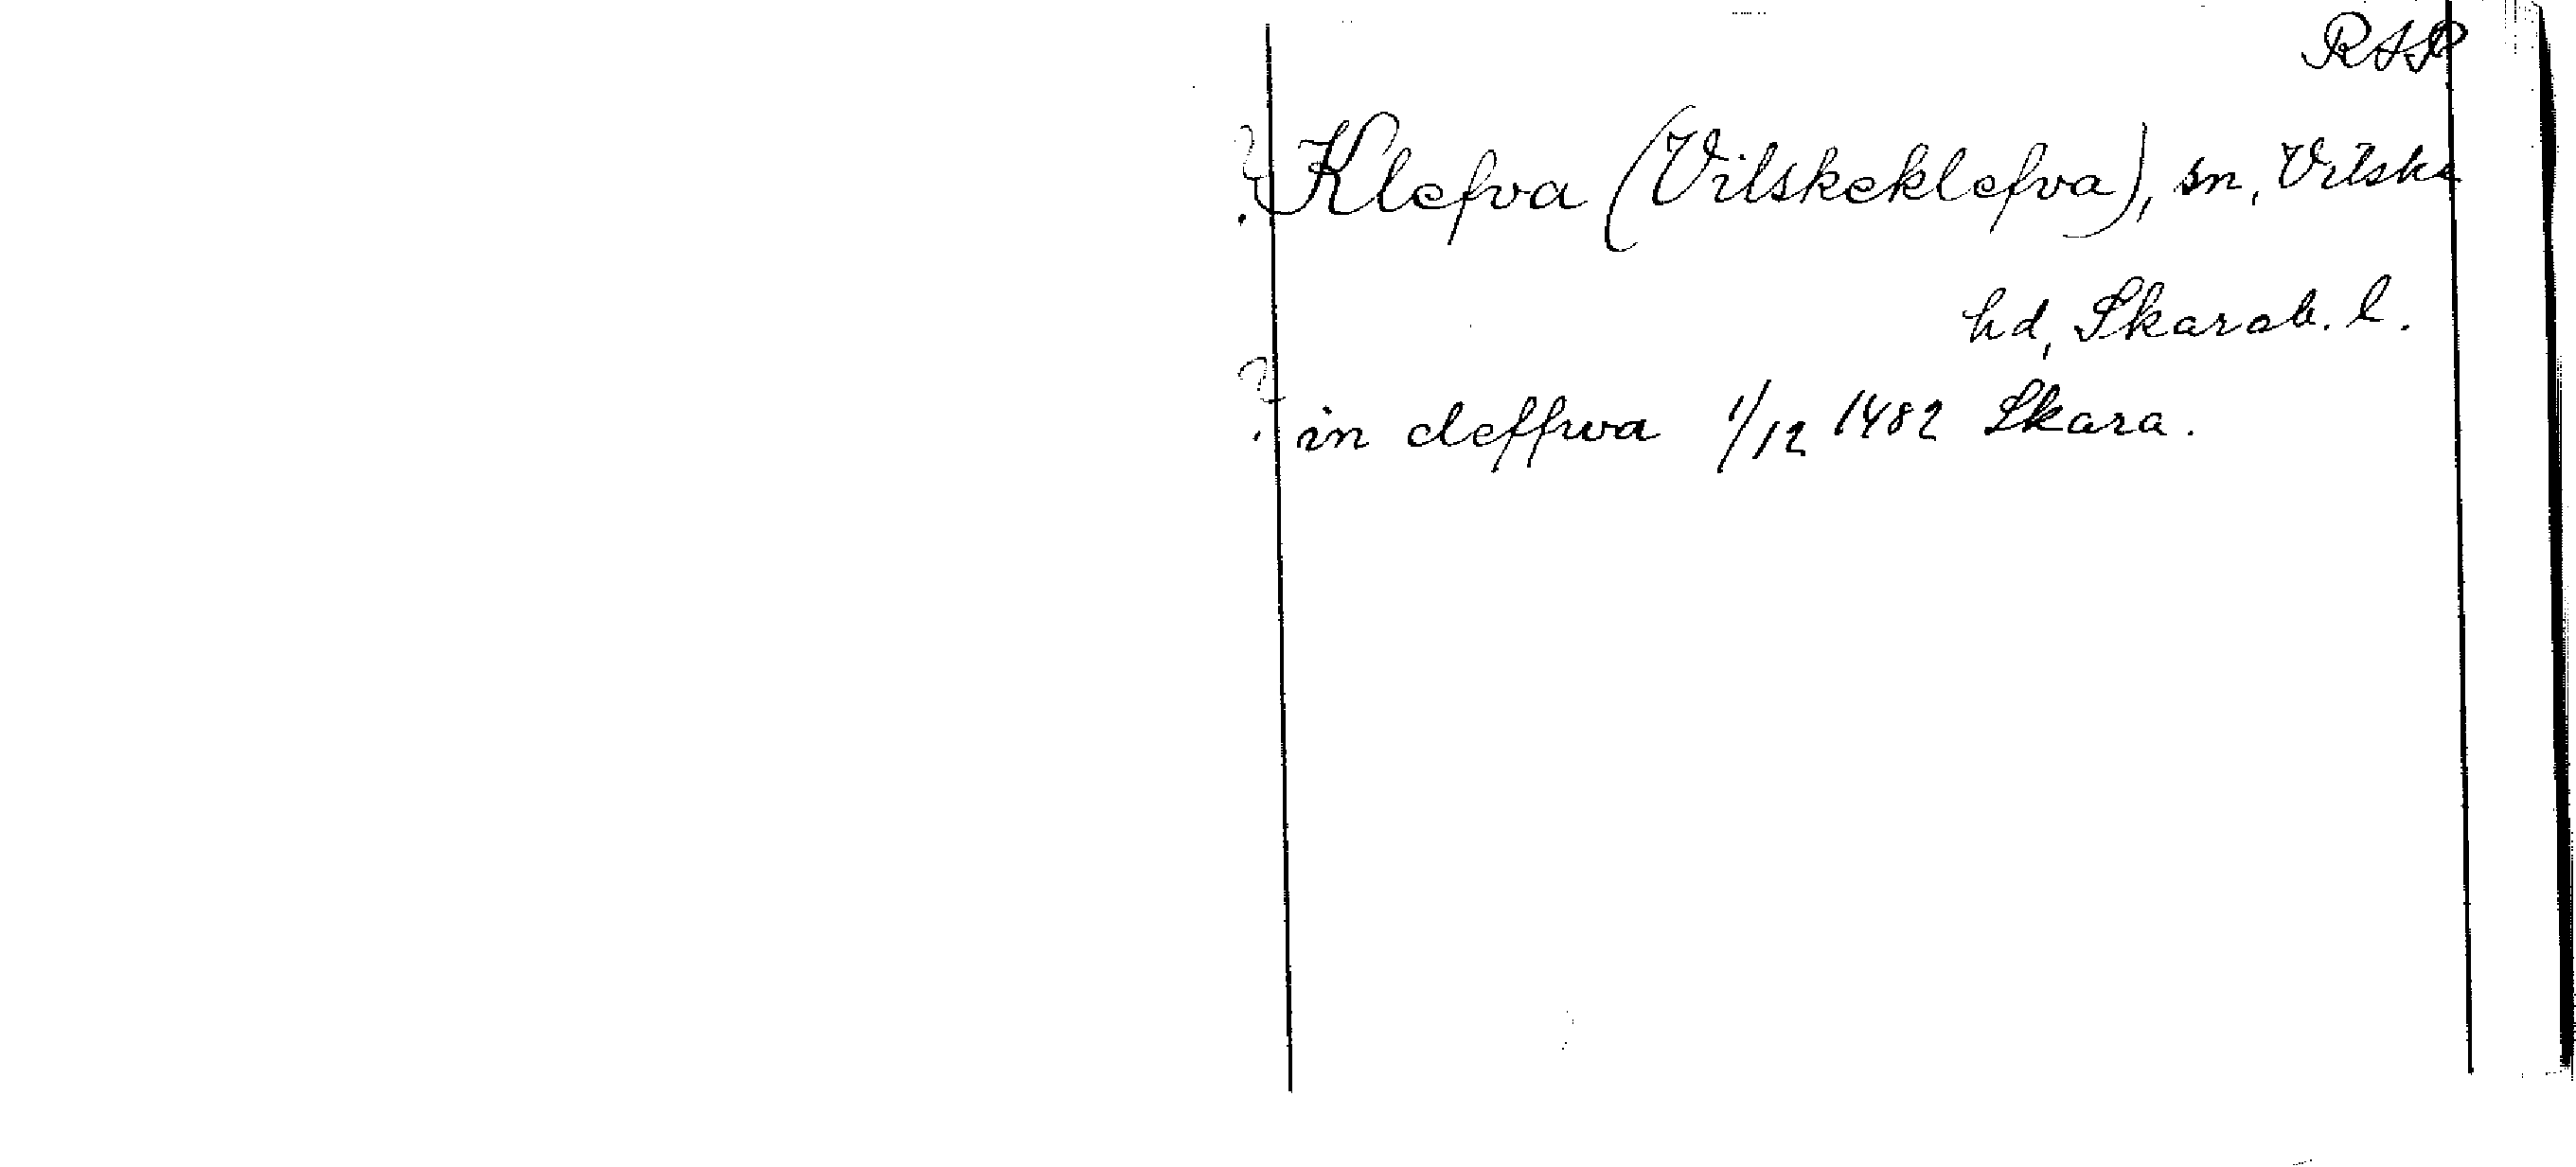 RAP
? Klefva (Vilskeklefva), sn, Vilske
hd, Skarab. l.
? in cleffwa 1/12 1482 Skara.